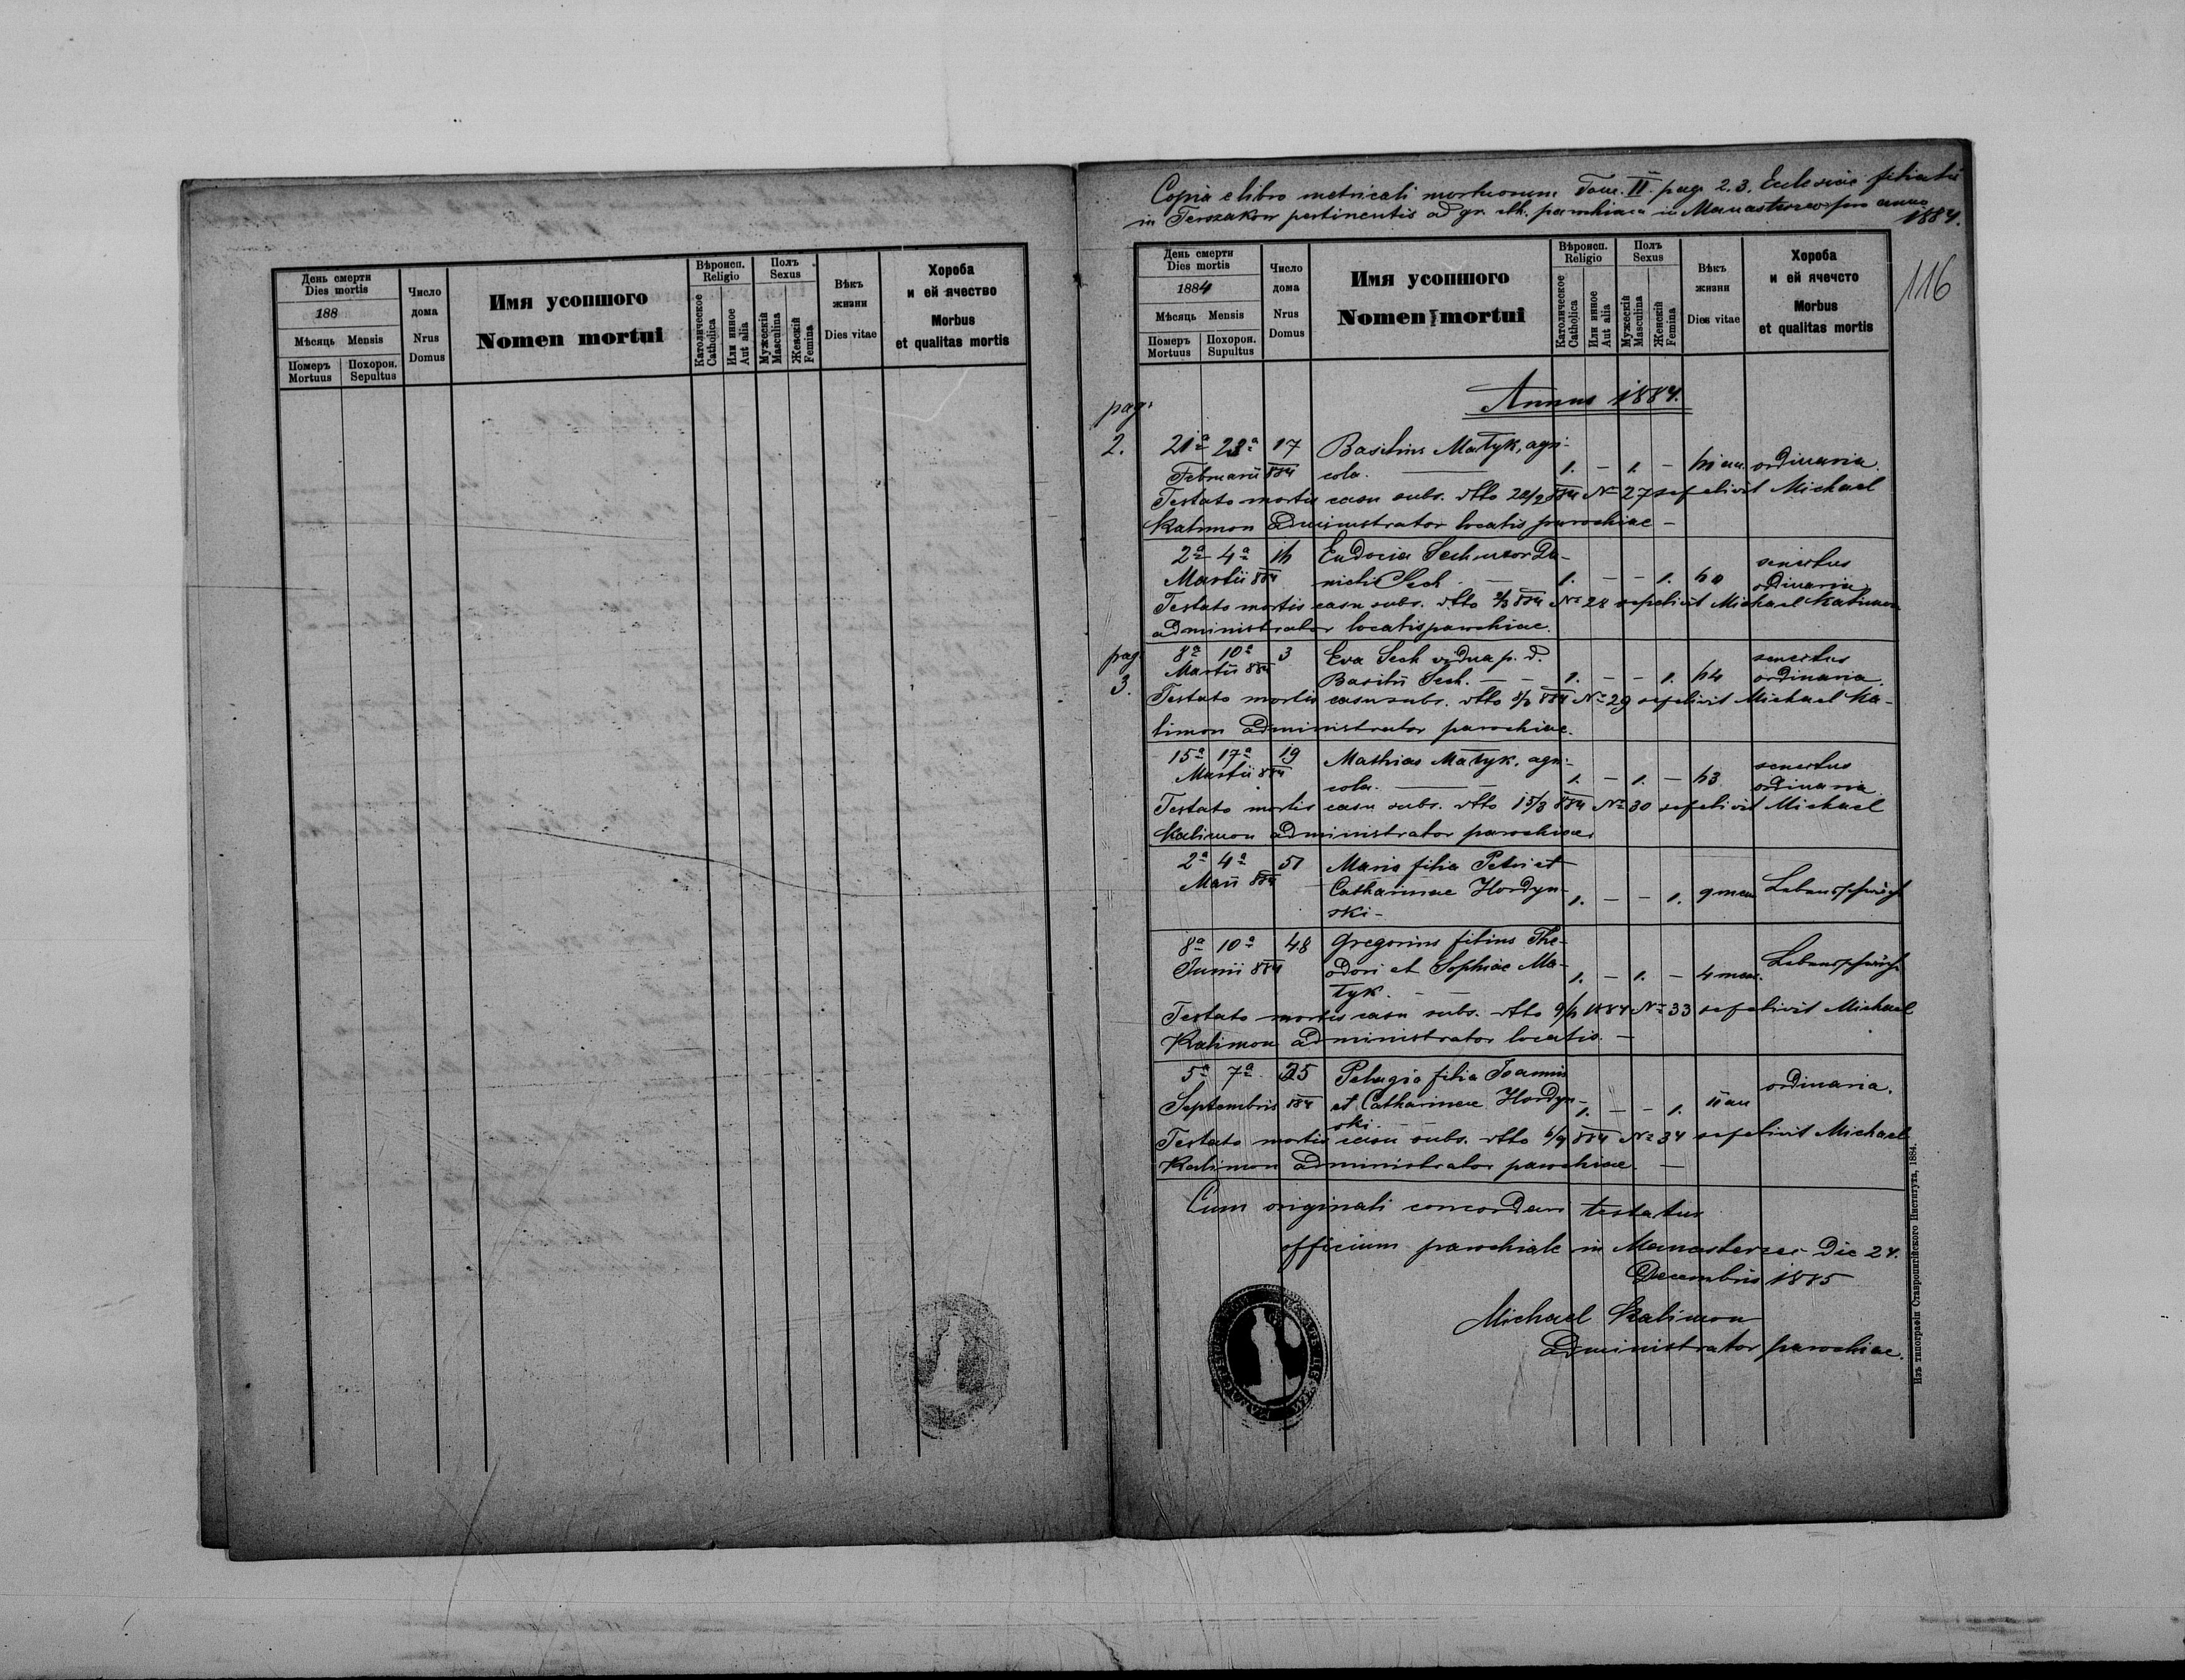 День смерти
Dies mortis
188
Мѣсяць Mensis
Померъ
Mortuus
Похорон.
Sepultus
Число
дома
Nrus
Domus
Имя усопшого
Nomen mortui
Вѣроисп.
Religio
Католическое
Catholica
Или инное
Aut alia
Полъ
Sexus
Мужескій
Masculina
Женскій
Femina
Вѣкъ
жизни
Dies vitae
Хороба
и ей ячество
Morbus
et qualitas mortis
Copia e libro metricali mortuorum Tom. II. pag. 2. 3. Ecclesiae filialis
in Terszakow pertinentis ad gr. cth. parochiam in Manasterzec pro anno
1884.
116
День смерти
Dies mortis
1884
Мѣсяць Mensis
Померъ
Mortuus
Похорон.
Supultus
Число
дома
Nrus
Domus
Имя усопшого
Nomen mortui
Вѣроисп.
Religio
Католическое
Catholica
Или инное
Aut alia
Полъ
Sexus
Мужескій
Masculina
Женскій
Femina
Вѣкъ
жизни
Dies vitae
Хороба
и ей ячечсто
Morbus
et qualitas mortis
Annus 1884.
pag.
2. 21ª 23ª 17 Basilius Matyk, agri-
Februarii 884 cola. — 1. – 1. – ordinaria.
Testato mortis casu subs. dtto 22/2 884 № 27 sepelivit Michael
Kalimon administrator locatis parochiae –
2ª 4ª Eudocia Sech uxor Da-
Martii 884 nielis Sech. – 1. – – 1. senectus
ordinaria
Testato mortis casu subs. dtto 2/3 884 № 28 sepelivit Michael Kalimon
administrator locatis parochiae.
pag. 8ª 10ª 3 Eva Sech vidua p. d. senectus
3. Martii 884 Basilii Sech. – – 1. – – 1. ordinaria.
Testato mortis casu subs. dtto 8/3 884 № 29 sepelivit Michael Ka-
limon administrator parochiae.
15ª 17ª 19 Mathias Matyk, agri- senectus
Martii 884 cola. — 1. – 1. – ordinaria
Testato mortis casu subs. dtto 15/3 884 № 30 sepelivit Michael
Kalimon administrator parochiae
2ª 4ª 51 Maria filia Petri et
Maii 884 Catharinae Hordyn- 1. – – 1. 9 men Lebensschwäche
ski –
8ª 10ª 48 Gregorius filius The-
Junii 884 odori et Sophiae Ma- 1. – 1. – 4 men. Lebensschwäche
tyk. – –
Testato mortis casu subs. dtto 1884 № 33 sepelivit Michael
Kalimon administrator locatis. –
5ª 7ª 25 Pelagia filia Joannis ordinaria.
Septembris 884 et Catharinae Hordyn- 1. – – 1. 11 an
ski. –
Testato mortis casu subs. dtto 6/9 884 № 34 sepelivit Michael
Kalimon administrator parochiae. —
Cum originali concordare testatur
officium parochiale in Manasterzec Die 24.
Decembris 1885
Michael Kalimon
administrator parochiae.
Изъ типографіи Ставропигійского Института, 1884.